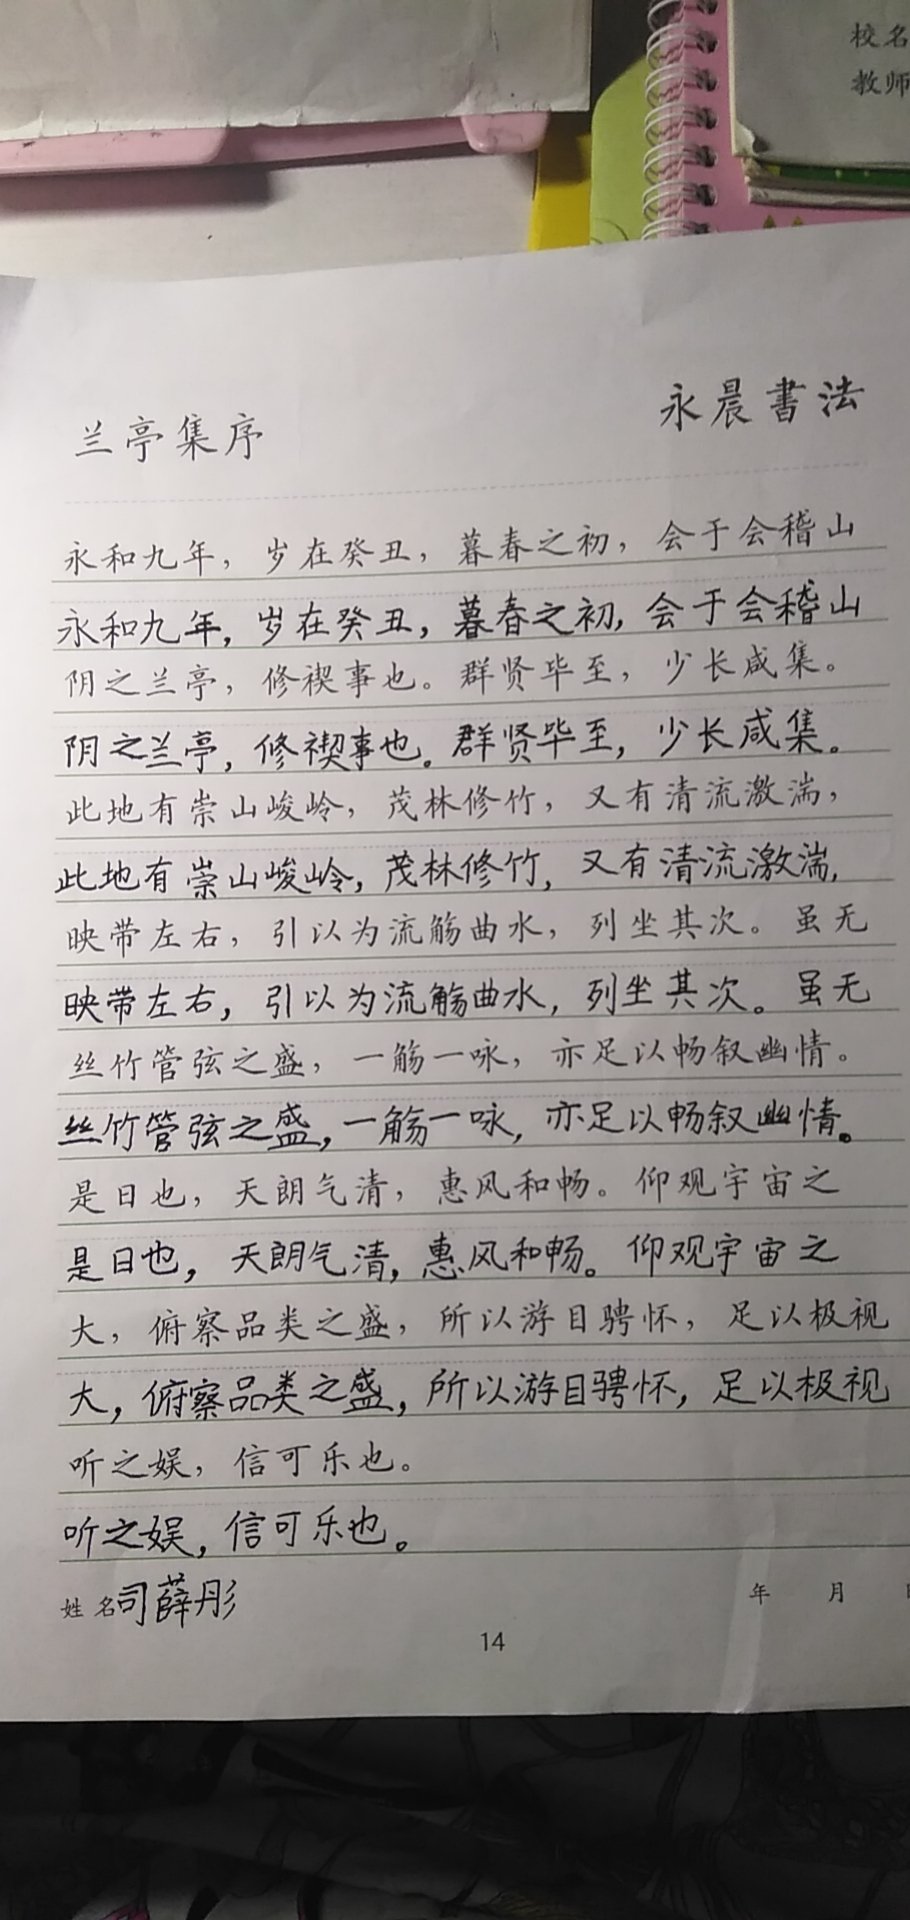 校名
教师
兰亭集序
永晨書法
永和九年，岁在癸丑，暮春之初，会于会稽山
永和九年，岁在癸丑，暮春之初，会于会稽山
阴之兰亭，修禊事也。群贤毕至，少长咸集。
阴之兰亭，修禊事也。群贤毕至，少长咸集。
此地有崇山峻岭，茂林修竹，又有清流激湍，
此地有崇山峻岭，茂林修竹，又有清流激湍，
映带左右，引以为流觞曲水，列坐其次。虽无
映带左右，引以为流觞曲水，列坐其次。虽无
丝竹管弦之盛，一觞一咏，亦足以畅叙幽情。
丝竹管弦之盛，一觞一咏，亦足以畅叙幽情。
是日也，天朗气清，惠风和畅。仰观宇宙之
是日也，天朗气清，惠风和畅。仰观宇宙之
大，俯察品类之盛，所以游目骋怀，足以极视
大，俯察品类之盛，所以游目骋怀，足以极视
听之娱，信可乐也。
听之娱，信可乐也。
姓名司薛彤 年 月
14